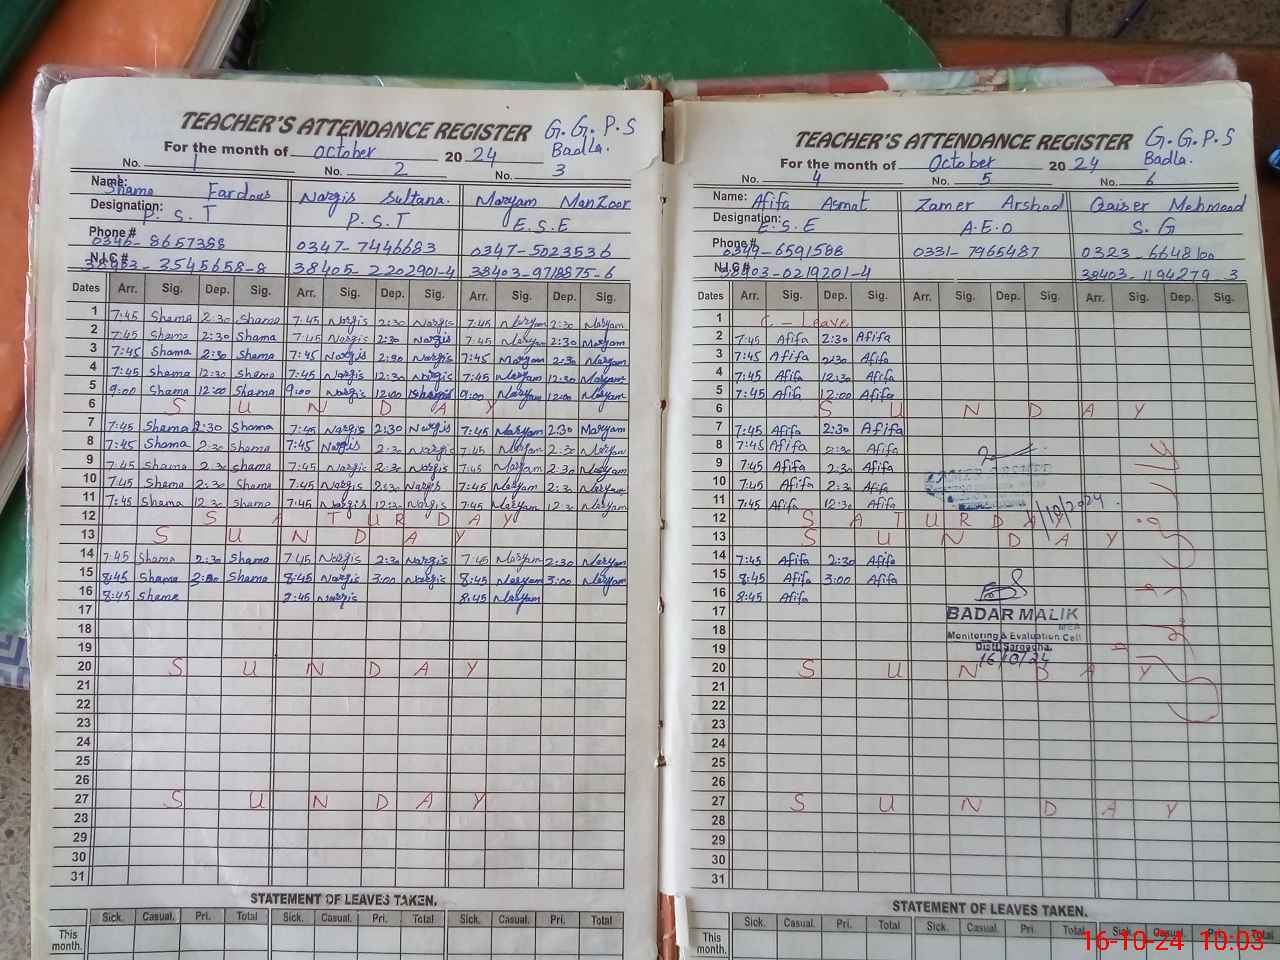 TEACHER'S ATTENDANCE REGISTER G.G.P.S
For the month of October 2024 Badla.
No. 1 No. 2 No. 3
Name: Shama Fardous Nargis Sultana. Maryam Manzoor
Designation: P.S.T P.S.T E.S.E
Phone # 0346-8657388 0347-7446683 0347-5023536
N.I.C # 38403-3545658-8 38405-2202901-4 38403-9718875-6
Dates Arr. Sig. Dep. Sig. Arr. Sig. Dep. Sig. Arr. Sig. Dep. Sig.
1 7:45 Shama 2:30 Shama 7:45 Nargis 2:30 Nargis 7:45 Maryam 2:30 Maryam
2 7:45 Shama 2:30 Shama 7:45 Nargis 2:30 Nargis 7:45 Maryam 2:30 Maryam
3 7:45 Shama 2:30 Shama 7:45 Nargis 2:30 Nargis 7:45 Maryam 2:30 Maryam
4 7:45 Shama 12:30 Shama 7:45 Nargis 12:30 Nargis 7:45 Maryam 12:30 Maryam
5 9:00 Shama 12:00 Shama 9:00 Nargis 12:00 9:00 Maryam 12:00 Maryam
6 S U N D A Y
7 7:45 Shama 2:30 Shama 7:45 Nargis 2:30 Nargis 7:45 Maryam 2:30 Maryam
8 7:45 Shama 2:30 Shama 7:45 Nargis 2:30 Nargis 7:45 Maryam 2:30 Maryam
9 7:45 Shama 2:30 Shama 7:45 Nargis 2:30 Nargis 7:45 Maryam 2:30 Maryam
10 7:45 Shama 2:30 Shama 7:45 Nargis 2:30 Nargis 7:45 Maryam 2:30 Maryam
11 7:45 Shama 12:30 Shama 7:45 Nargis 12:30 Nargis 7:45 Maryam 12:30 Maryam
12 S A T U R D A Y
13 S U N D A Y
14 7:45 Shama 2:30 Shama 7:45 Nargis 2:30 Nargis 7:45 Maryam 2:30 Maryam
15 8:45 Shama Shama 8:45 Nargis 3:00 Nargis 8:45 Maryam 3:00 Maryam
16 8:45 Shama 8:45 Nargis 8:45 Maryam
17
18
19
20 S U N D A Y
21
22
23
24
25
26
27 S U N D A Y
28
29
30
31
STATEMENT OF LEAVES TAKEN.
Sick. Casual. Pri. Total Sick. Casual. Pri. Total Sick. Casual. Pri. Total
This month.
TEACHER'S ATTENDANCE REGISTER G.G.P.S
For the month of October 2024 Badla.
No. 4 No. 5 No. 6
Name: Afifa Asmat Zamer Arshad Qaiser Mehmood
Designation: E.S.E A.E.O S.G
Phone # 0349-6591588 0331-7965487 0323-6648100
N.I.C # 38403-0219201-4 38403-1194279-3
Dates Arr. Sig. Dep. Sig. Arr. Sig. Dep. Sig. Arr. Sig. Dep. Sig.
1 C - Leave
2 7:45 Afifa 2:30 Afifa
3 7:45 Afifa 2:30 Afifa
4 7:45 Afifa 12:30 Afifa
5 7:45 Afifa 12:00 Afifa
6 S U N D A Y
7 7:45 Afifa 2:30 Afifa
8 7:45 Afifa 2:30 Afifa
9 7:45 Afifa 2:30 Afifa
10 7:45 Afifa 2:30 Afifa
11 7:45 Afifa 12:30 Afifa
12 S A T U R D A Y
/10/2024
13 S U N D A Y
14 7:45 Afifa 2:30 Afifa
15 8:45 Afifa 3:00 Afifa
16 8:45 Afifa
17 BADAR MALIK
MEA
18 Monitoring & Evaluation Cell
19 Distt. Sargodha.
16/10/24
20 S U N D A Y
21
22
23
24
25
26
27 S U N D A Y
28
29
30
31
STATEMENT OF LEAVES TAKEN.
Sick. Casual. Pri. Total Sick. Casual. Pri. Total Sick. Casual. Pri. Total
This month.
16-10-24 10:03